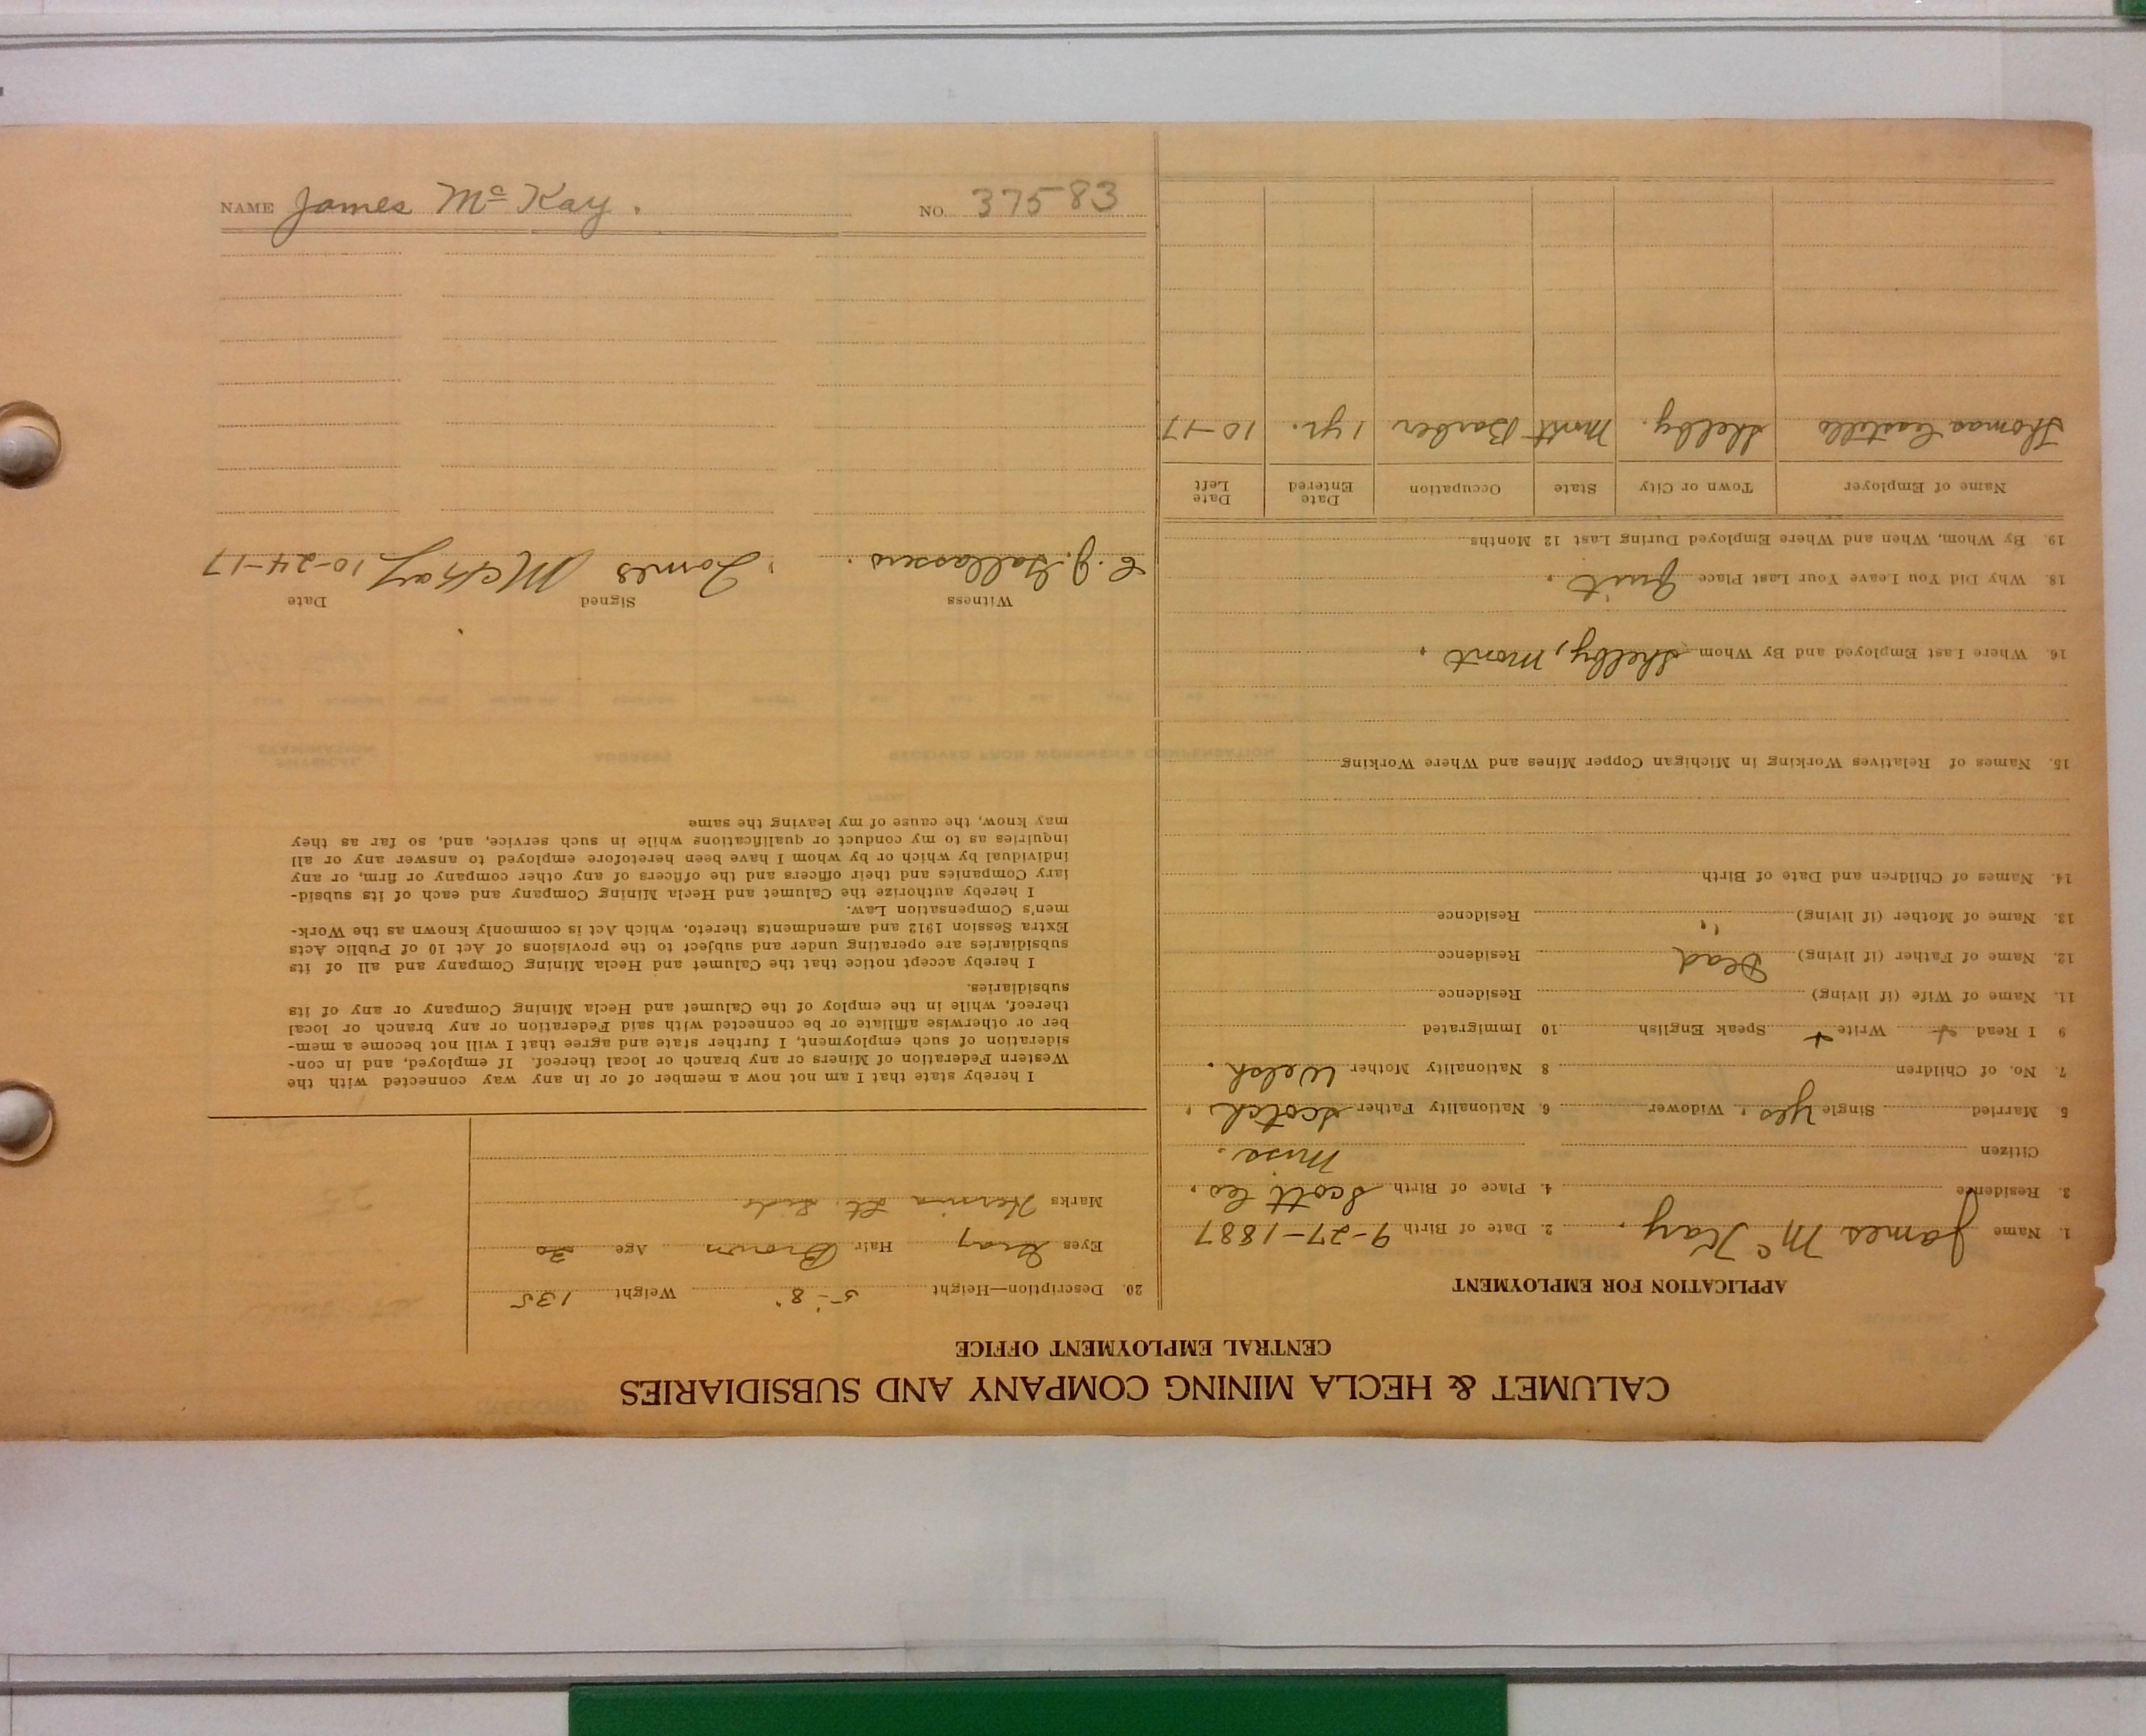 CALUMET & HECLA MINING COMPANY AND SUBSIDIARIES
CENTRAL EMPLOYMENT OFFICE
APPLICATION FOR EMPLOYMENT
1. Name James McKay. 2. Date of Birth 9-27-1887
3. Residence 4. Place of Birth Scott Co.
Citizen Miss.
5 Married Single Yes. Widower 6. Nationality Father Scotch.
7. No. of Children 8 Nationality Mother Welsh.
9 I Read + Write + Speak English 10 Immigrated
11. Name of Wife (if living) Residence
12. Name of Father (if living) Dead Residence
13. Name of Mother (if living) " Residence
14. Names of Children and Date of Birth
15. Names of Relatives Working in Michigan Copper Mines and Where Working
16. Where Last Employed and By Whom Shelby, Mont.
18. Why Did You Leave Your Last Place Quit.
19. By Whom, When and Where Employed During Last 12 Months
Name of Employer Town or City State Occupation Date Entered Date Left
Thomas Castello Shelby. Mont Barber 1 yr. 10-17
20. Description—Height 5'-8" Weight 135
Eyes Gray Hair Brown Age 30
Marks Hernia Lt. Side.
I hereby state that I am not now a member of or in any way connected with the
Western Federation of Miners or any branch or local thereof. If employed, and in con-
sideration of such employment, I further state and agree that I will not become a mem-
ber or otherwise affiliate or be connected with said Federation or any branch or local
thereof, while in the employ of the Calumet and Hecla Mining Company or any of its
subsidiaries.
I hereby accept notice that the Calumet and Hecla Mining Company and all of its
subsidiaries are operating under and subject to the provisions of Act 10 of Public Acts
Extra Session 1912 and amendments thereto, which Act is commonly known as the Work-
men's Compensation Law.
I hereby authorize the Calumet and Hecla Mining Company and each of its subsid-
iary Companies and their officers and the officers of any other company or firm, or any
individual by which or by whom I have been heretofore employed to answer any or all
inquiries as to my conduct or qualifications while in such service, and, so far as they
may know, the cause of my leaving the same
Witness Signed Date
E. J. James McKay 10-24-17
NAME James McKay. NO. 37583